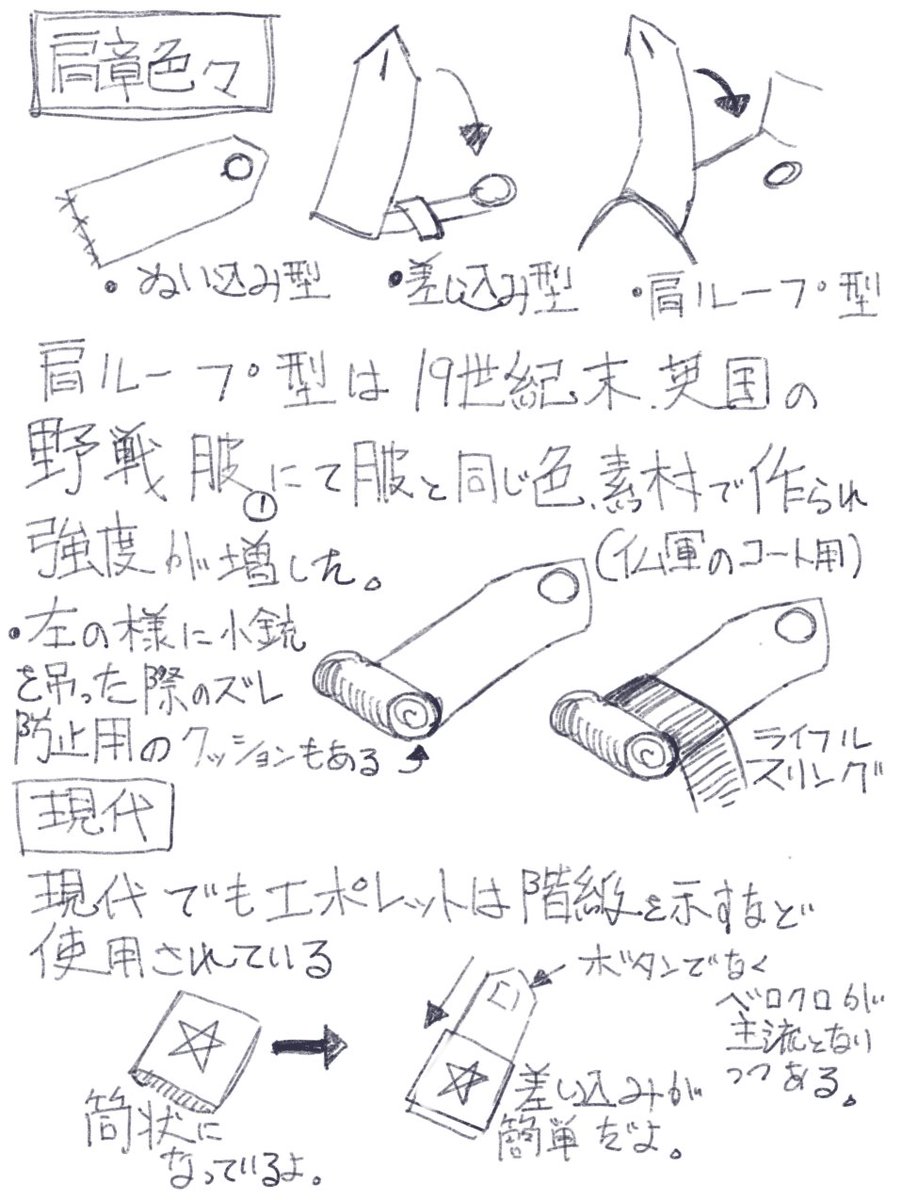 肩章色々
・ぬい込み型
・差し込み型
・肩ループ型
肩ループ型は19世紀末英国の
野戦服①にて服と同じ色、素材で作られ
強度が増した。
(仏軍のコート用)
・左の様に小銃
を吊った際のズレ
防止用のクッションもある
ライフル
スリング
現代
現代でもエポレットは階級を示すなど
使用されている
ボタンでなく
ベロクロが
主流となり
つつある。
筒状に
なっているよ。
差し込みが
簡単だよ。